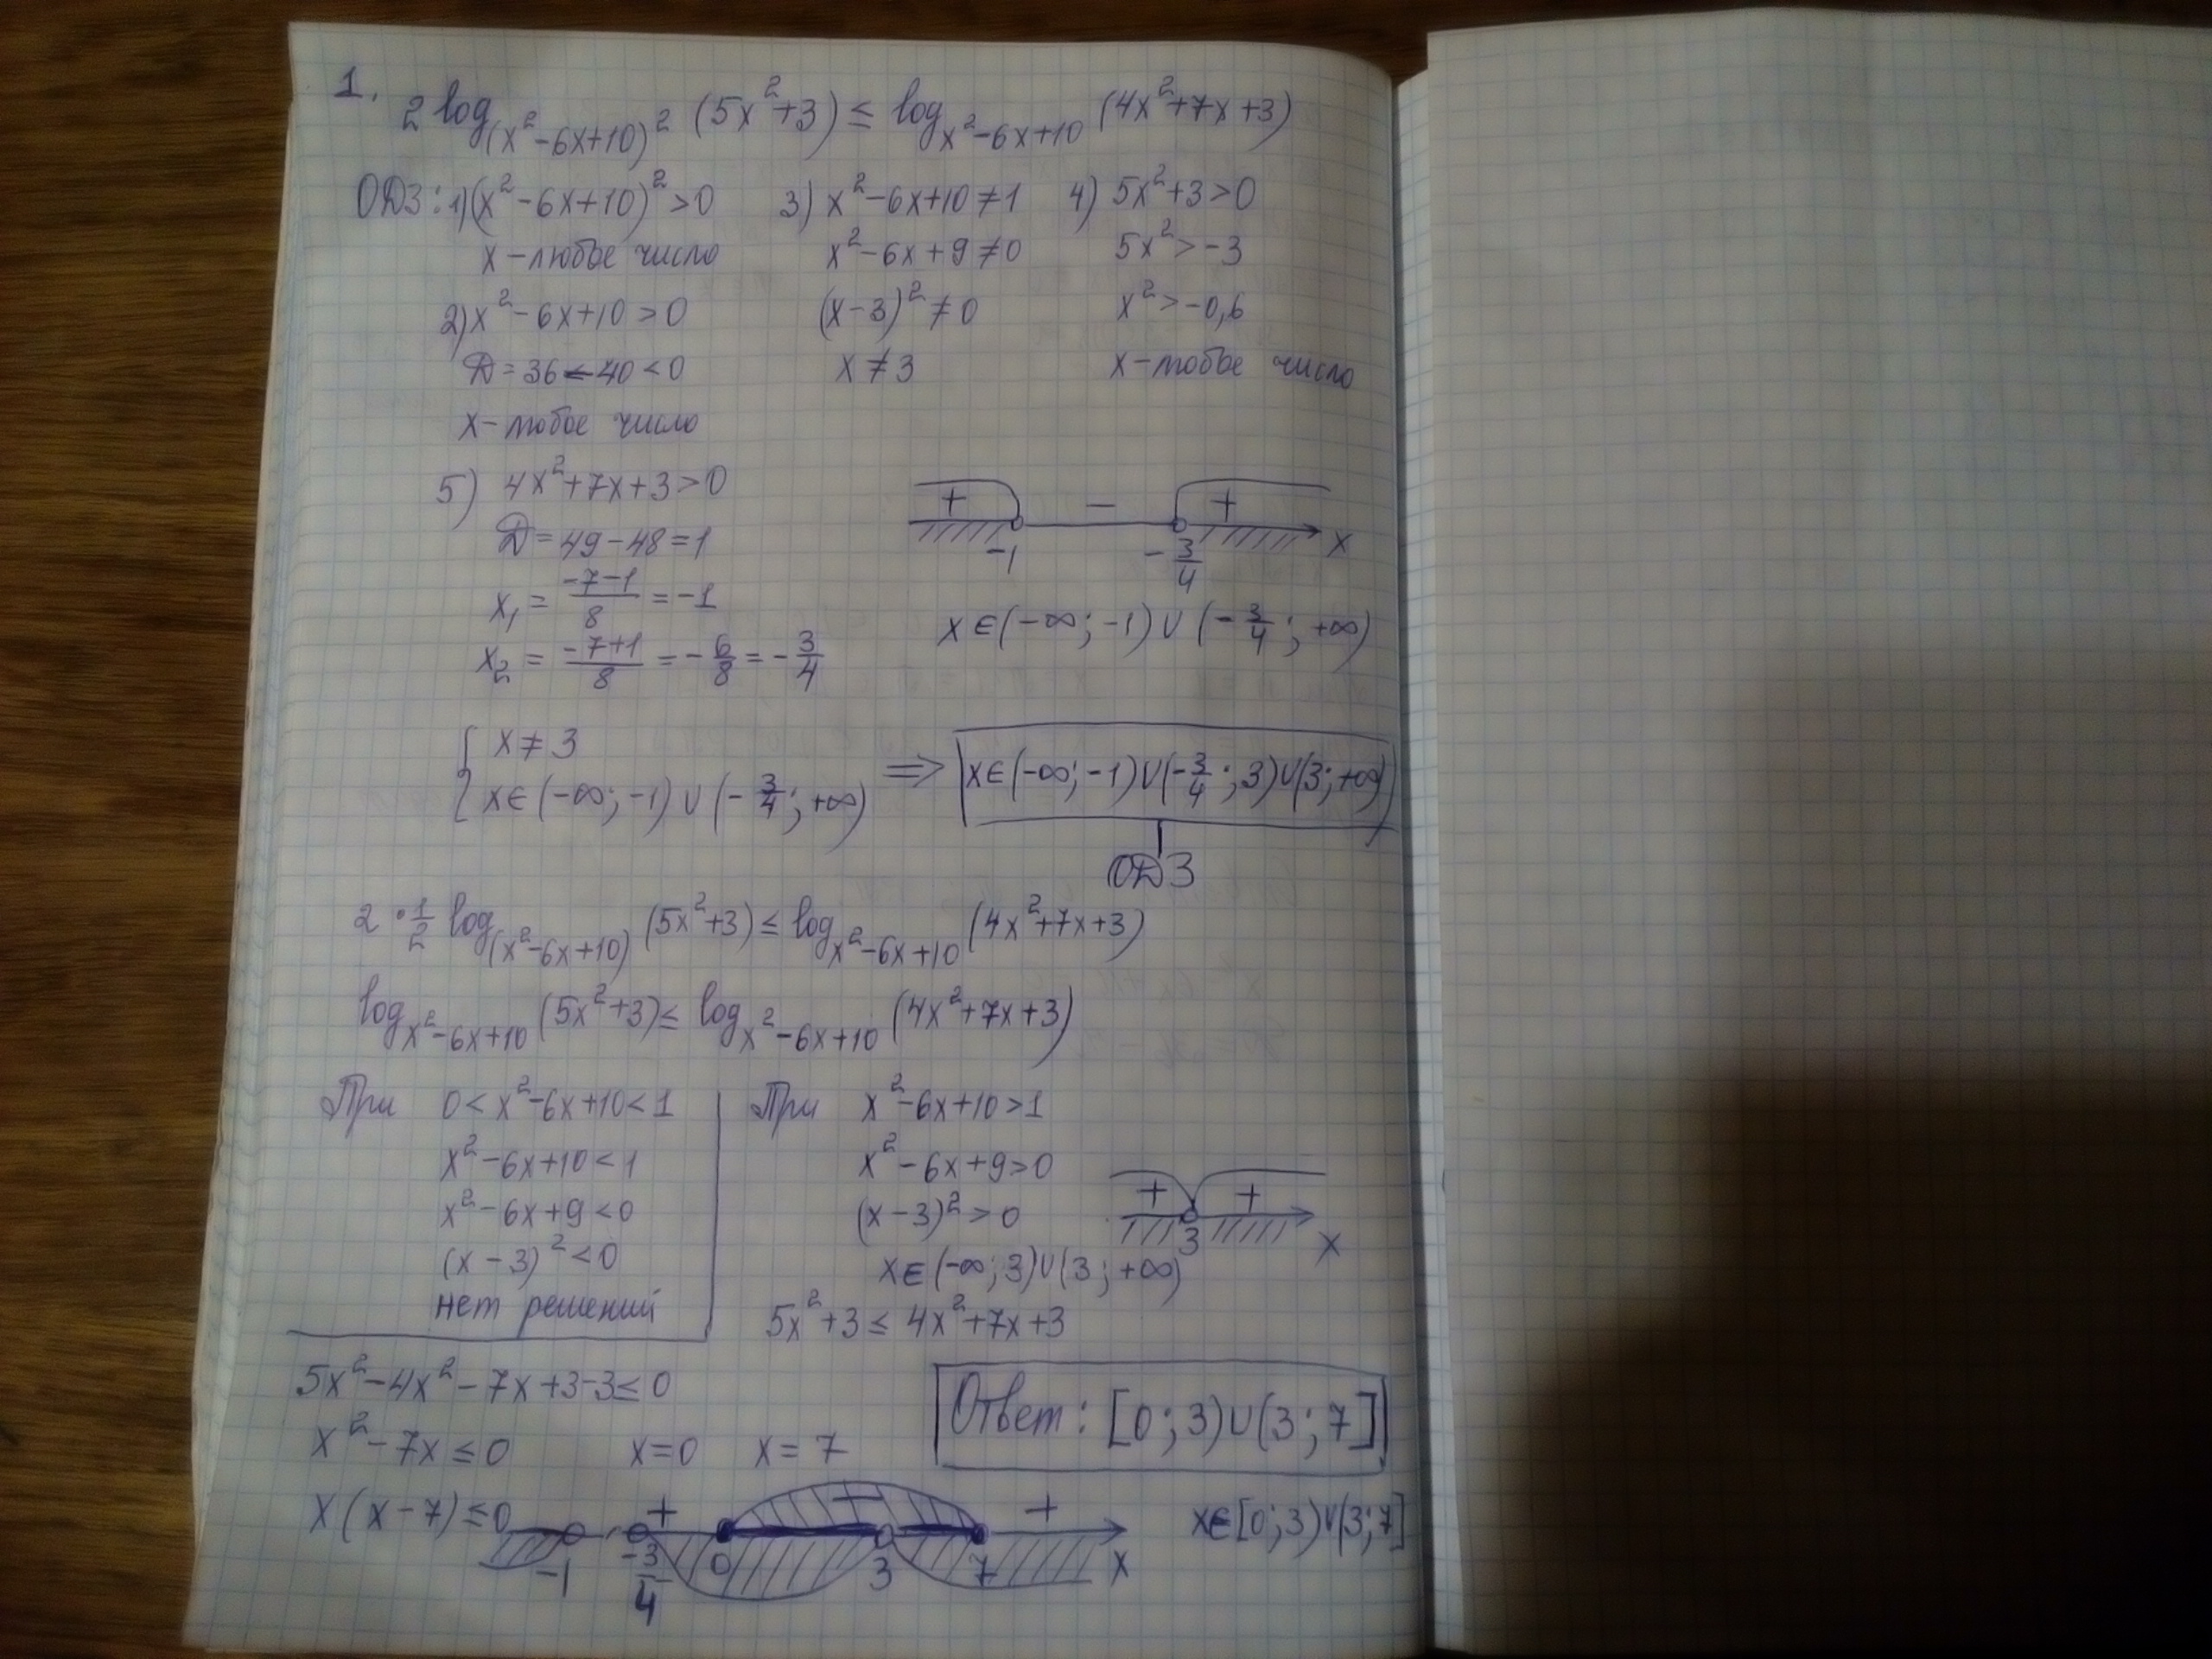 1. 2 log_{(x²-6x+10)²} (5x²+3) ≤ log_{x²-6x+10} (4x²+7x+3)
ОДЗ: 1) (x²-6x+10)² > 0
x - любое число
2) x²-6x+10 > 0
D = 36-40 < 0
x - любое число
3) x²-6x+10 ≠ 1
x²-6x+9 ≠ 0
(x-3)² ≠ 0
x ≠ 3
4) 5x²+3 > 0
5x² > -3
x² > -0,6
x - любое число
5) 4x²+7x+3 > 0
D = 49-48 = 1
x₁ = (-7-1)/8 = -1
x₂ = (-7+1)/8 = -6/8 = -3/4
+ - +
-1 -3/4 x
x ∈ (-∞; -1) ∪ (-3/4; +∞)
{ x ≠ 3
x ∈ (-∞; -1) ∪ (-3/4; +∞) ⇒ x ∈ (-∞; -1) ∪ (-3/4; 3) ∪ (3; +∞)
ОДЗ
2 · 1/2 log_{(x²-6x+10)} (5x²+3) ≤ log_{x²-6x+10} (4x²+7x+3)
log_{x²-6x+10} (5x²+3) ≤ log_{x²-6x+10} (4x²+7x+3)
При 0 < x²-6x+10 < 1
x²-6x+10 < 1
x²-6x+9 < 0
(x-3)² < 0
нет решений
При x²-6x+10 > 1
x²-6x+9 > 0
(x-3)² > 0
+ +
3 x
x ∈ (-∞; 3) ∪ (3; +∞)
5x²+3 ≤ 4x²+7x+3
5x²-4x²-7x+3-3 ≤ 0
x²-7x ≤ 0 x=0 x=7
x(x-7) ≤ 0
+ - +
-1 -3/4 0 3 7 x
x ∈ [0; 3) ∪ (3; 7]
Ответ: [0; 3) ∪ (3; 7]